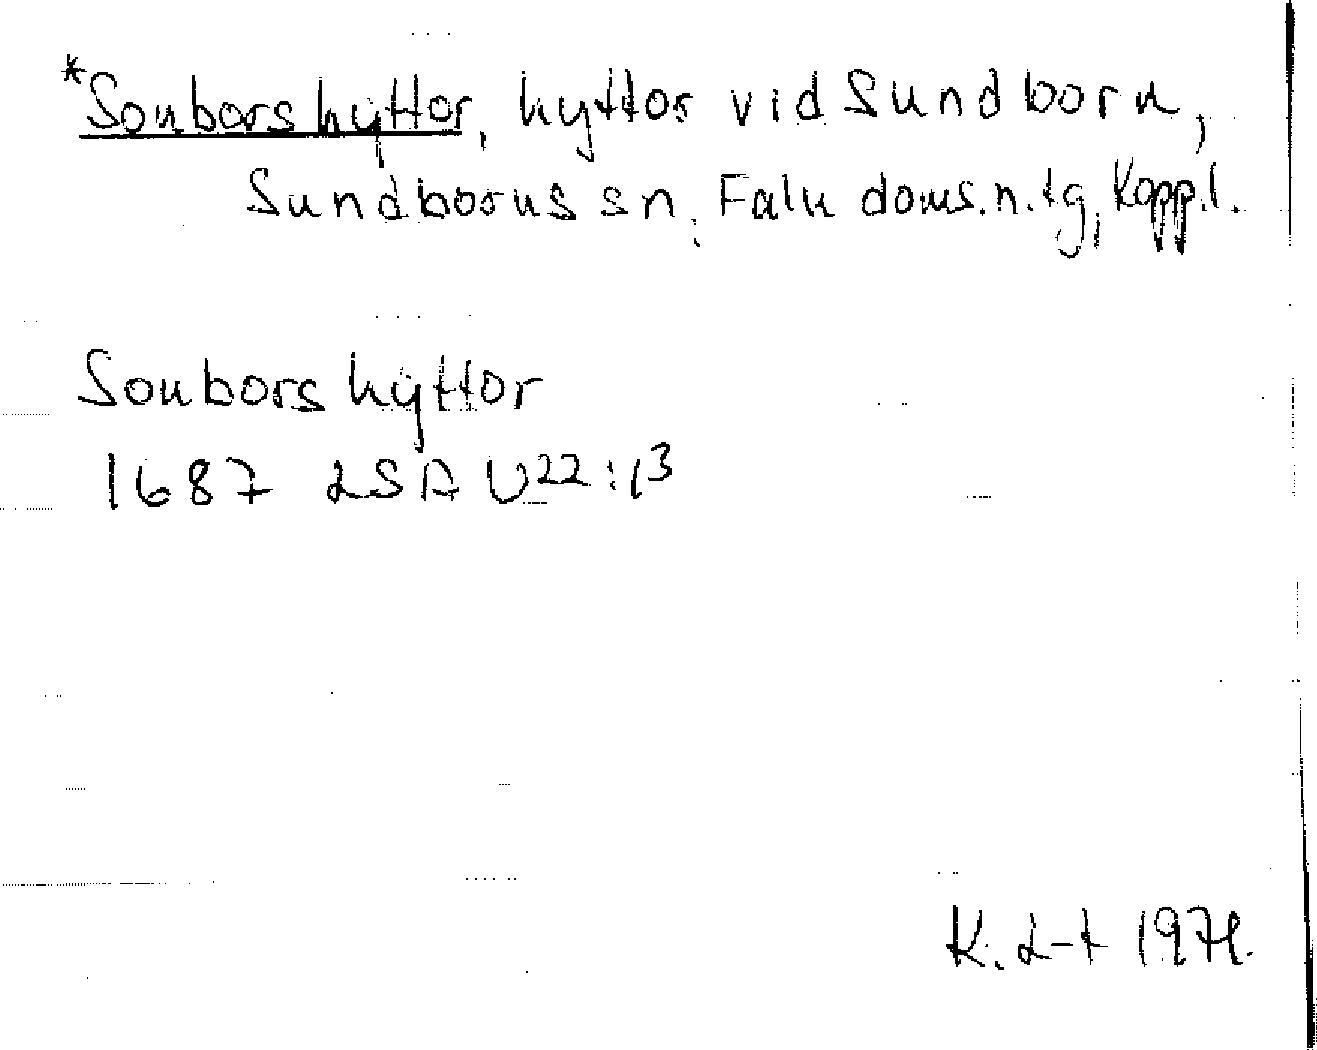 *Sonborshyttor, hyttor vid Sundborn,
Sundborns sn, Falu doms.n.tg, Kopp.l.
Sonbors hyttor
1687 LSA U22:13
K. L-t 1971.